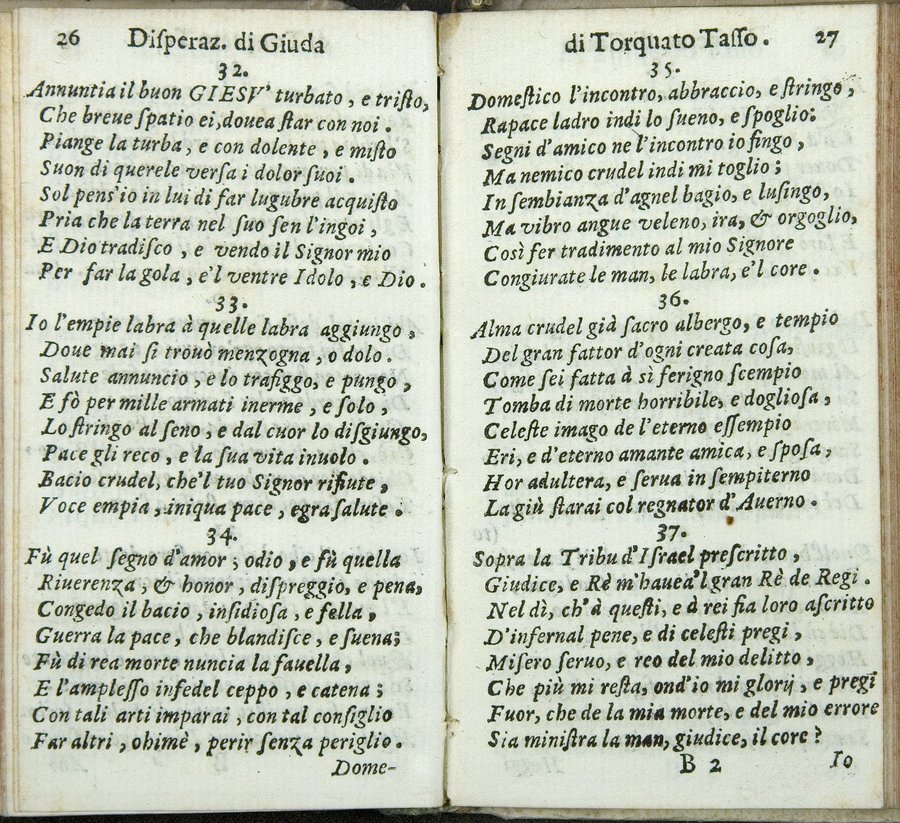 26 Diſperaz. di Giuda
32.
Annuntia il buon GIESV' turbato, e triſto,
Che breue ſpatio ei, douea ſtar con noi.
Piange la turba, e con dolente, e miſto
Suon di querele verſa i dolor ſuoi.
Sol penſ'io in lui di far lugubre acquiſto
Pria che la terra nel ſuo ſen l'ingoi,
E Dio tradiſco, e vendo il Signor mio
Per far la gola, e'l ventre Idolo, e Dio.
33.
Io l'empie labra à quelle labra aggiungo,
Doue mai ſi trouò menzogna, o dolo.
Salute annuncio, e lo trafiggo, e pungo,
E fò per mille armati inerme, e ſolo,
Lo ſtringo al ſeno, e dal cuor lo diſgiungo,
Pace gli reco, e la ſua vita inuolo.
Bacio crudel, che'l tuo Signor rifiute,
Voce empia, iniqua pace, egra ſalute.
34.
Fù quel ſegno d'amor; odio, e fù quella
Riuerenza, & honor, diſpreggio, e pena,
Congedo il bacio, inſidioſa, e fella,
Guerra la pace, che blandiſce, e ſuena;
Fù di rea morte nuncia la fauella,
E l'ampleſſo infedel ceppo, e catena;
Con tali arti imparai, con tal conſiglio
Far altri, ohimè, perir ſenza periglio.
Dome-
di Torquato Taſſo. 27
35.
Domeſtico l'incontro, abbraccio, e ſtringo,
Rapace ladro indi lo ſueno, e ſpoglio:
Segni d'amico ne l'incontro io fingo,
Ma nemico crudel indi mi toglio;
In ſembianza d'agnel bagio, e luſingo,
Ma vibro angue veleno, ira, & orgoglio,
Così fer tradimento al mio Signore
Congiurate le man, le labra, e'l core.
36.
Alma crudel già ſacro albergo, e tempio
Del gran fattor d'ogni creata coſa,
Come ſei fatta à sì ferigno ſcempio
Tomba di morte horribile, e doglioſa,
Celeſte imago de l'eterno eſſempio
Eri, e d'eterno amante amica, e ſpoſa,
Hor adultera, e ſerua in ſempiterno
La giù ſtarai col regnator d'Auerno.
37.
Sopra la Tribu d'Iſrael preſcritto,
Giudice, e Rè m'hauea'l gran Rè de Regi.
Nel dì, ch'à queſti, e à rei fia loro aſcritto
D'infernal pene, e di celeſti pregi,
Miſero ſeruo, e reo del mio delitto,
Che più mi reſta, ond'io mi glorij, e pregi
Fuor, che de la mia morte, e del mio errore
Sia miniſtra la man, giudice, il core?
B 2 Io